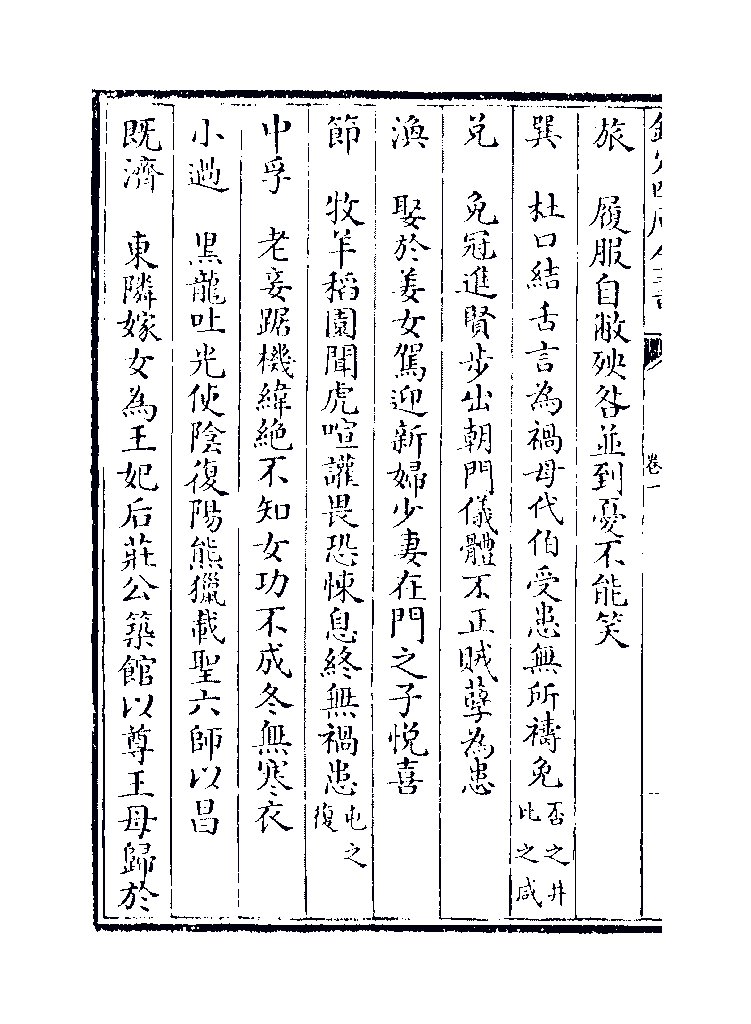 旅　履服自敝殃咎並到憂不能笑
巽　杜口結舌言為禍母代伯受患無所禱免否之井比之咸
兌　免冠進賢步出朝門儀體不正賊孽為患
渙　娶於姜女駕迎新婦少妻在門之子悅喜
節　牧羊稻園聞虎喧讙畏恐悚息終無禍患屯之復
中孚　老妾踞機緯絶不知女功不成冬無寒衣
小過　黑龍吐光使陰復陽熊獵載聖六師以昌
既濟　東隣嫁女為王妃后莊公築館以尊王母歸於